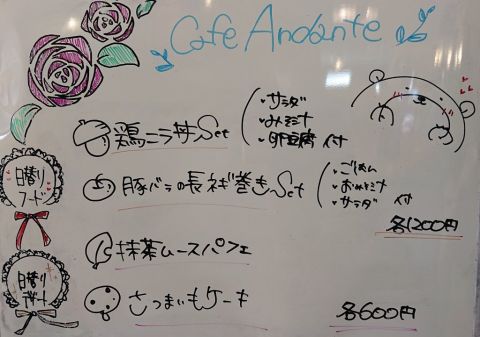 Cafe Andante
鶏ニラ丼Set
・サラダ
・みそ汁
・卵豆腐 付
日替り
フード
豚バラの長ネギ巻きSet
・ごはん
・おみそ汁
・サラダ 付
各1200円
抹茶ムースパフェ
日替り
デザート
さつまいもケーキ
各600円